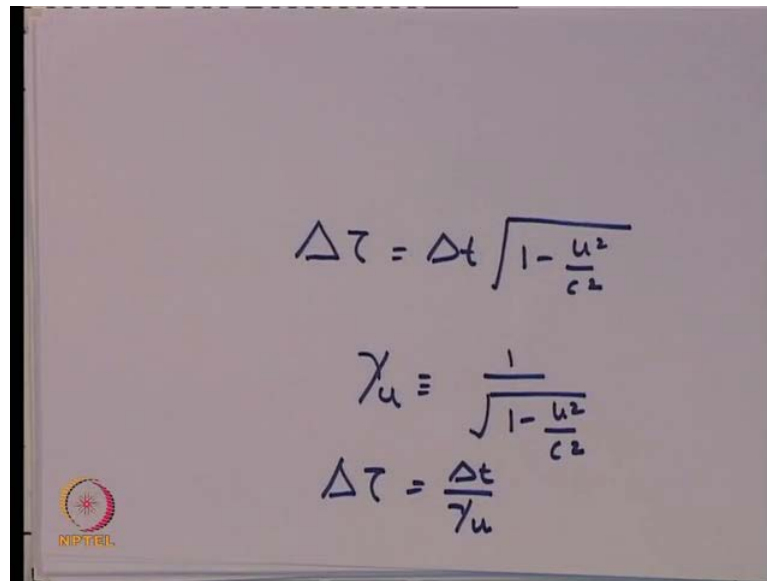 Δτ = Δt √(1 - u²/c²)
γᵤ ≡ 1/√(1 - u²/c²)
Δτ = Δt/γᵤ
NPTEL